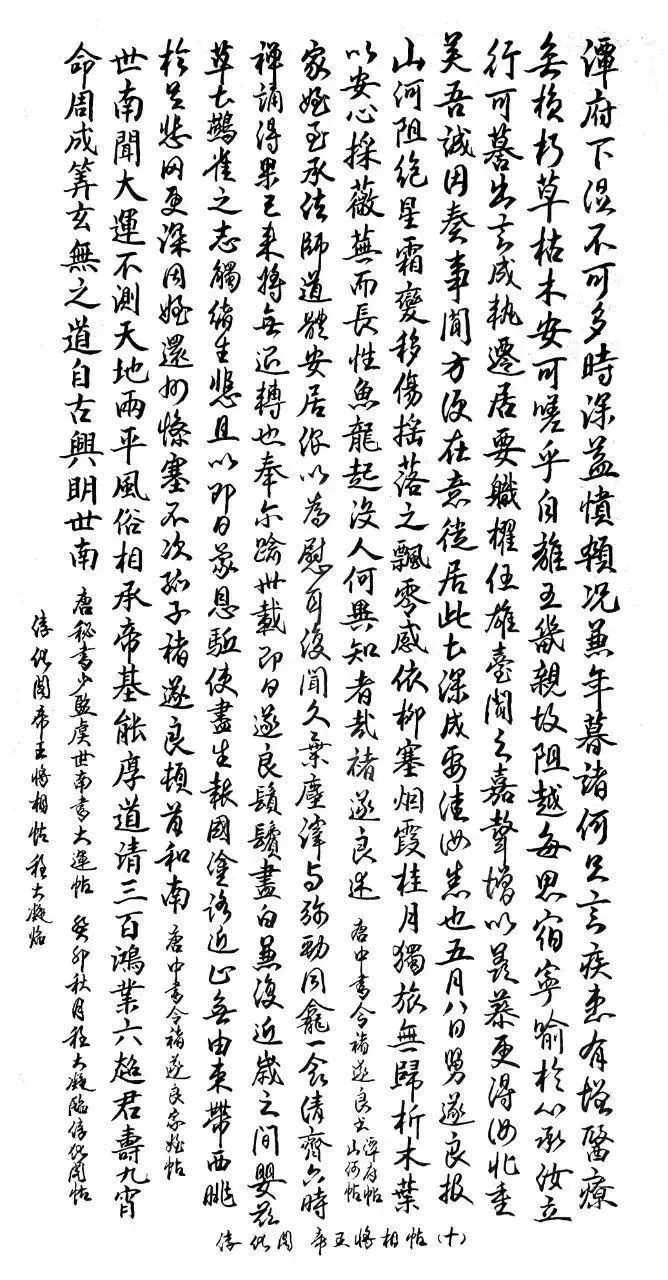 潭府下湿不可多時深益憤頓况兼年暮諸何足言疾患有增醫療
無損朽草枯木安可嗟乎自離王畿親故阻越每思宿寧喻於心承汝立
行可慕出言成執遷居要職櫂任雄臺聞之嘉聲增以景慕更得汝北重
美吾誠因奏事閒方便在意從居此土深成要佳汝悉也五月八日舅遂良报
山河阻绝星霜變移傷摇落之飄零感依柳塞烟霞桂月獨旅無歸析木葉
以安心採薇蕪而長性魚龍起没人何異知者哉禇遂良述 唐中書令禇遂良書潭府帖山河帖
家姪至承法師道體安居深以為慰耳復聞久棄塵滓与弥勒同龕一食清齊六時
禪誦得果已来將無退轉也奉尓踰卅載即日遂良鬚鬢盡白兼復近歲之間嬰茲
草土鷰雀之志觸緒生悲且以即日蒙恩驅使盡生報國塗路近止無由束帶西眺
於邑悲罔更深因姪還州慘塞不次孤子禇遂良頓首和南 唐中書令禇遂良家姪帖
世南聞大運不測天地兩平風俗相承帝基能厚道清三百鴻業六超君壽九霄
命周成筭玄無之道自古興明世南 唐秘書少監虞世南書大運帖 癸卯秋月程大凝臨淳化閣帖
淳化閣帝王將相帖程大凝
淳化閣 帝王將相帖(十)